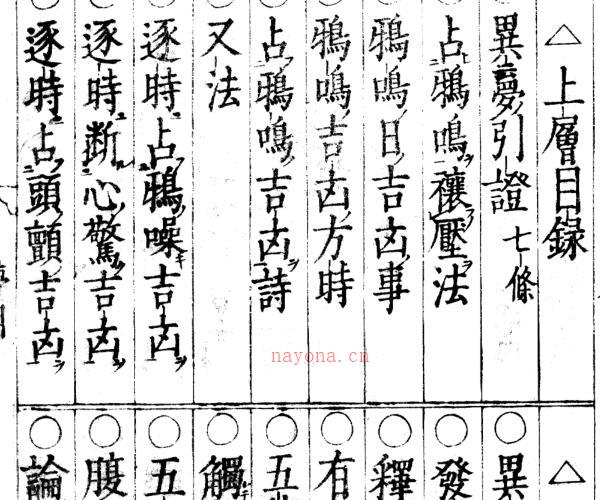 △上層目録
異夢引證 七條
占鴉鳴禳壓法
鴉鳴日吉凶事
鴉鳴吉凶方時
占鴉鳴吉凶詩
又法
逐時占鴉噪吉凶
逐時断心驚吉凶
逐時占頭顫吉凶
△
○異
○發
○釋
○有
○五
○觸
○五
○腹
○論
nayona.cn